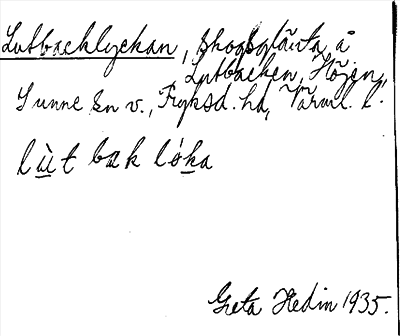 Lutbacklyckan, skogsglänta å
Lutbacken, Höjen,
Sunne sn v., Fryksd. hd, Värml. l.
lùt bak lóka
Greta Hedin 1935.